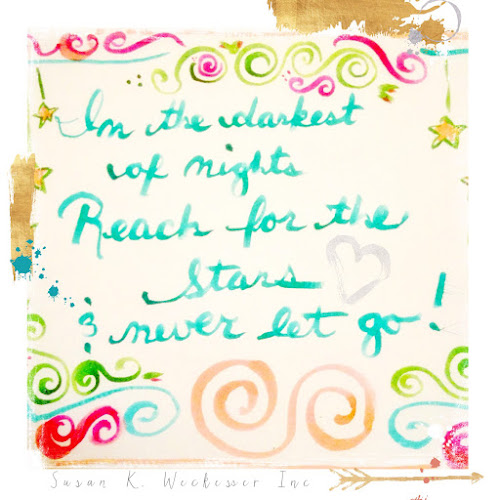 In the darkest
of nights
Reach for the
Stars
& never let go!
Susan K. Weckesser Inc